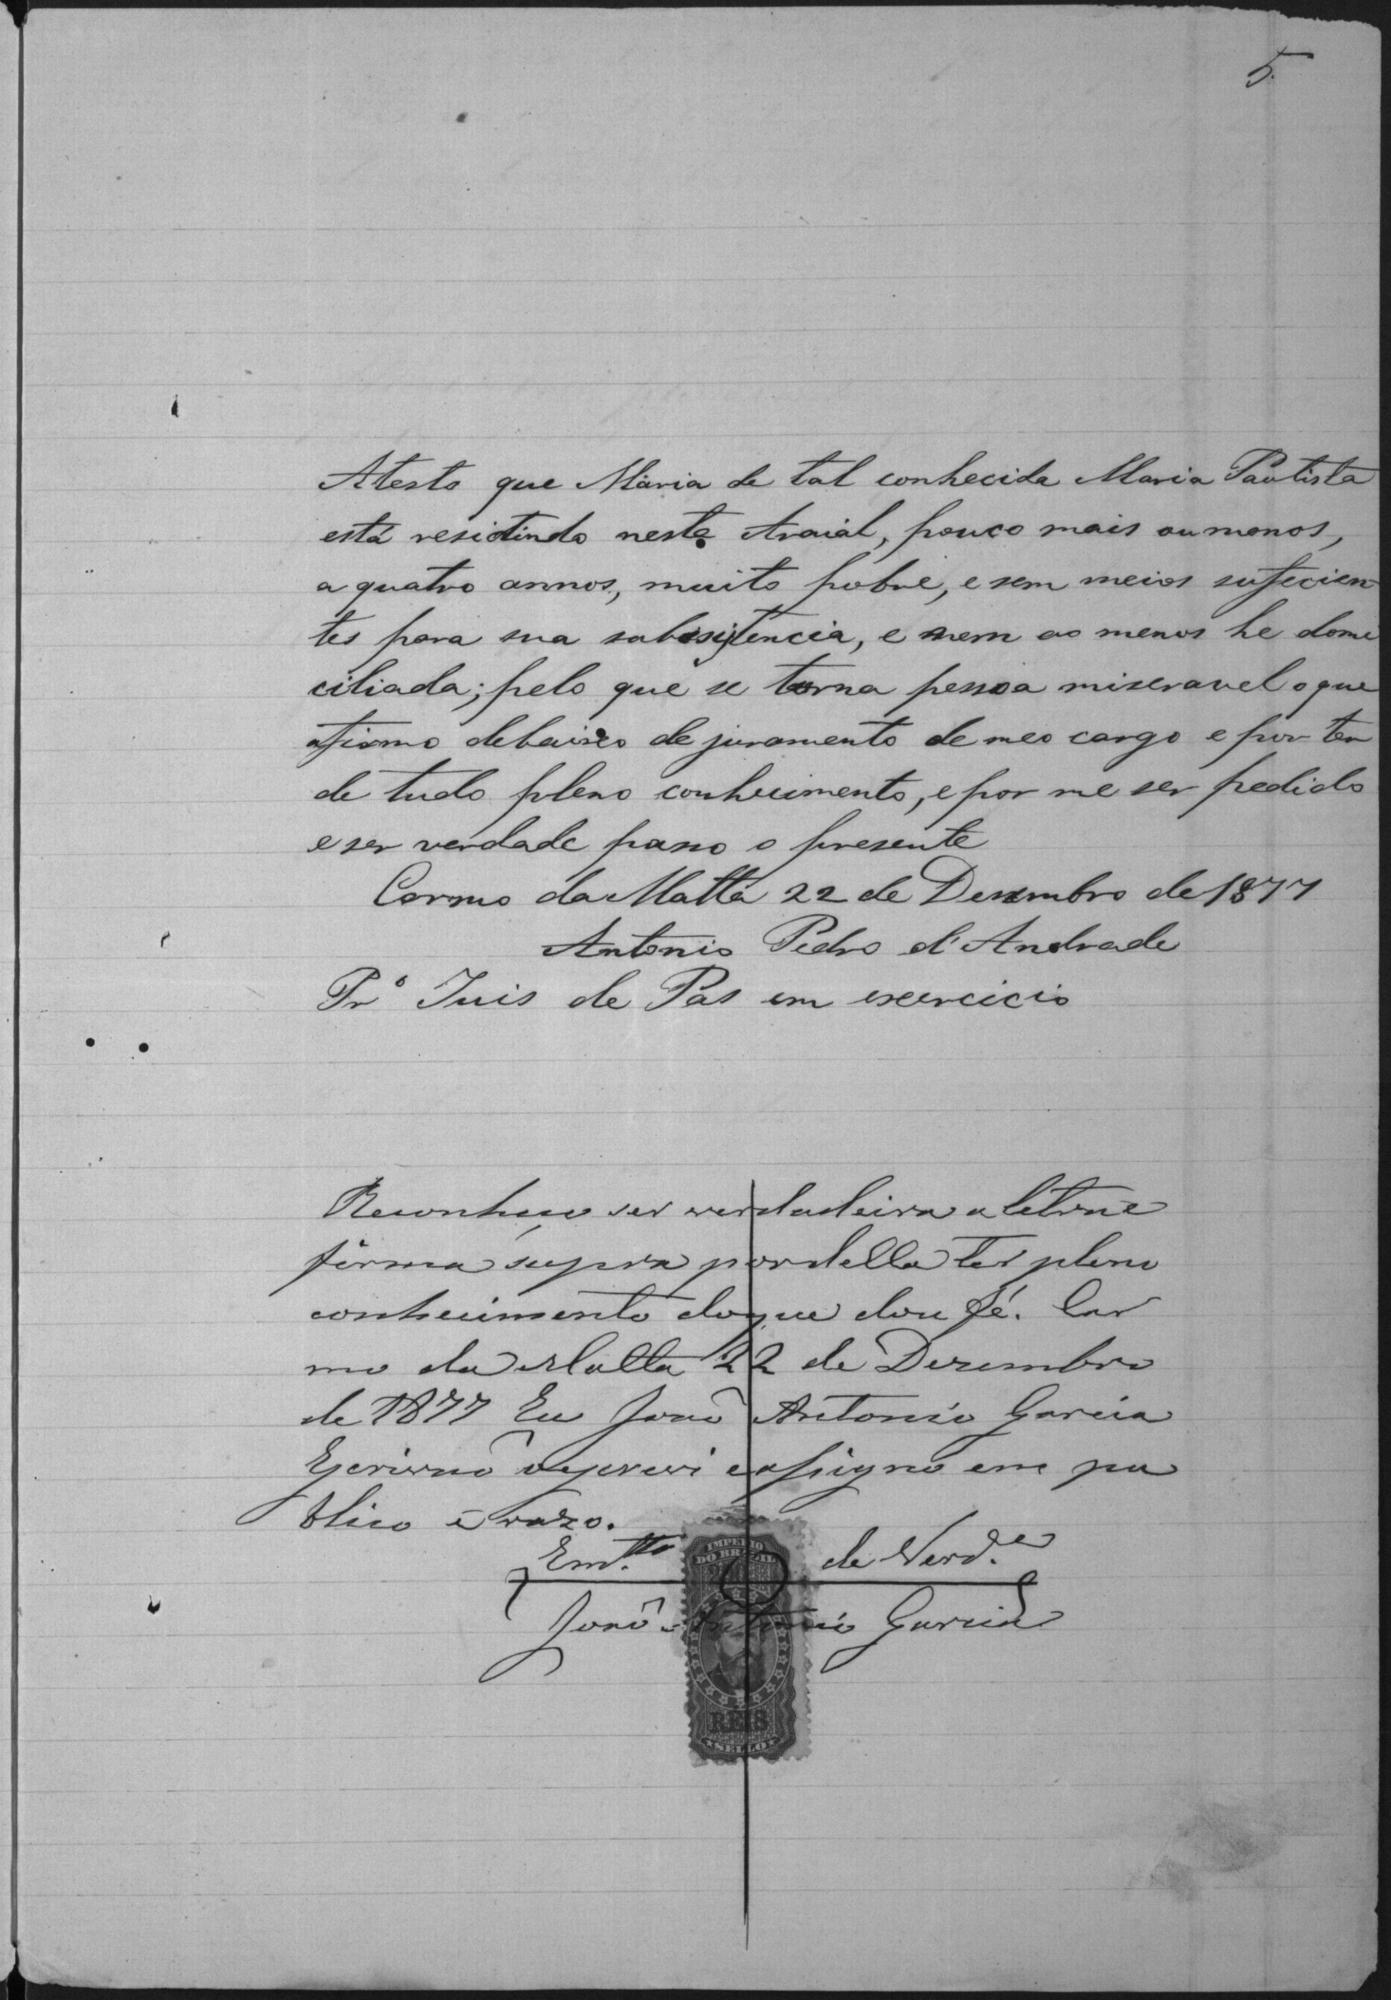 5.
Atesto que Maria de tal conhecida Maria Pautista
está residindo neste Araial, pouco mais ou menos,
a quatro annos, muito pobre, e sem meios sufecien-
tes para sua subsistencia, e nem ao menos he dome
ciliada; pelo que se torna pessoa miseravel o que
afirmo debaixo de juramento de meo cargo e por ter
de tudo pleno conhecimento, e por me ser pedido
e ser verdade passo o presente
Carmo da Matta 22 de Dezembro de 1877
Antonio Pedro d'Andrade
Pr.º Juis de Pas em exercicio
Reconheço ser verdadeira a letra e
firma supra por della ter pleno
conhecimento do que dou fé. Car
mo da Matta 22 de Dezembro
de 1877 Eu João Antonio Garcia
Escrivaõ o escrevi e assigno em pu
blico e razo.
Em tto de Verd.e
IMPERIO
DO BRAZIL
João Antonio Garcia
REIS
SELLO